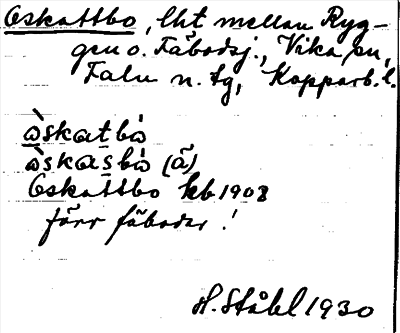 Oskattbo, lht mellan Ryg-
gen o. Fäbodsj., Vika sn,
Falu n. tg, Kopparb. l.
òskatbò
òskasbò (ā)
Oskattbo kb 1908
förr fäbodar!
H. Ståhl 1930